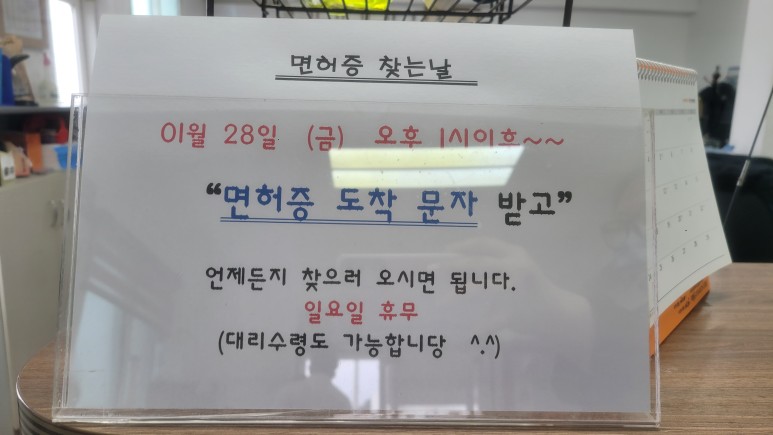 면허증 찾는날
이월 28일 (금) 오후 1시이후~~
“면허증 도착 문자 받고”
언제든지 찾으러 오시면 됩니다.
일요일 휴무
(대리수령도 가능합니당 ^.^)